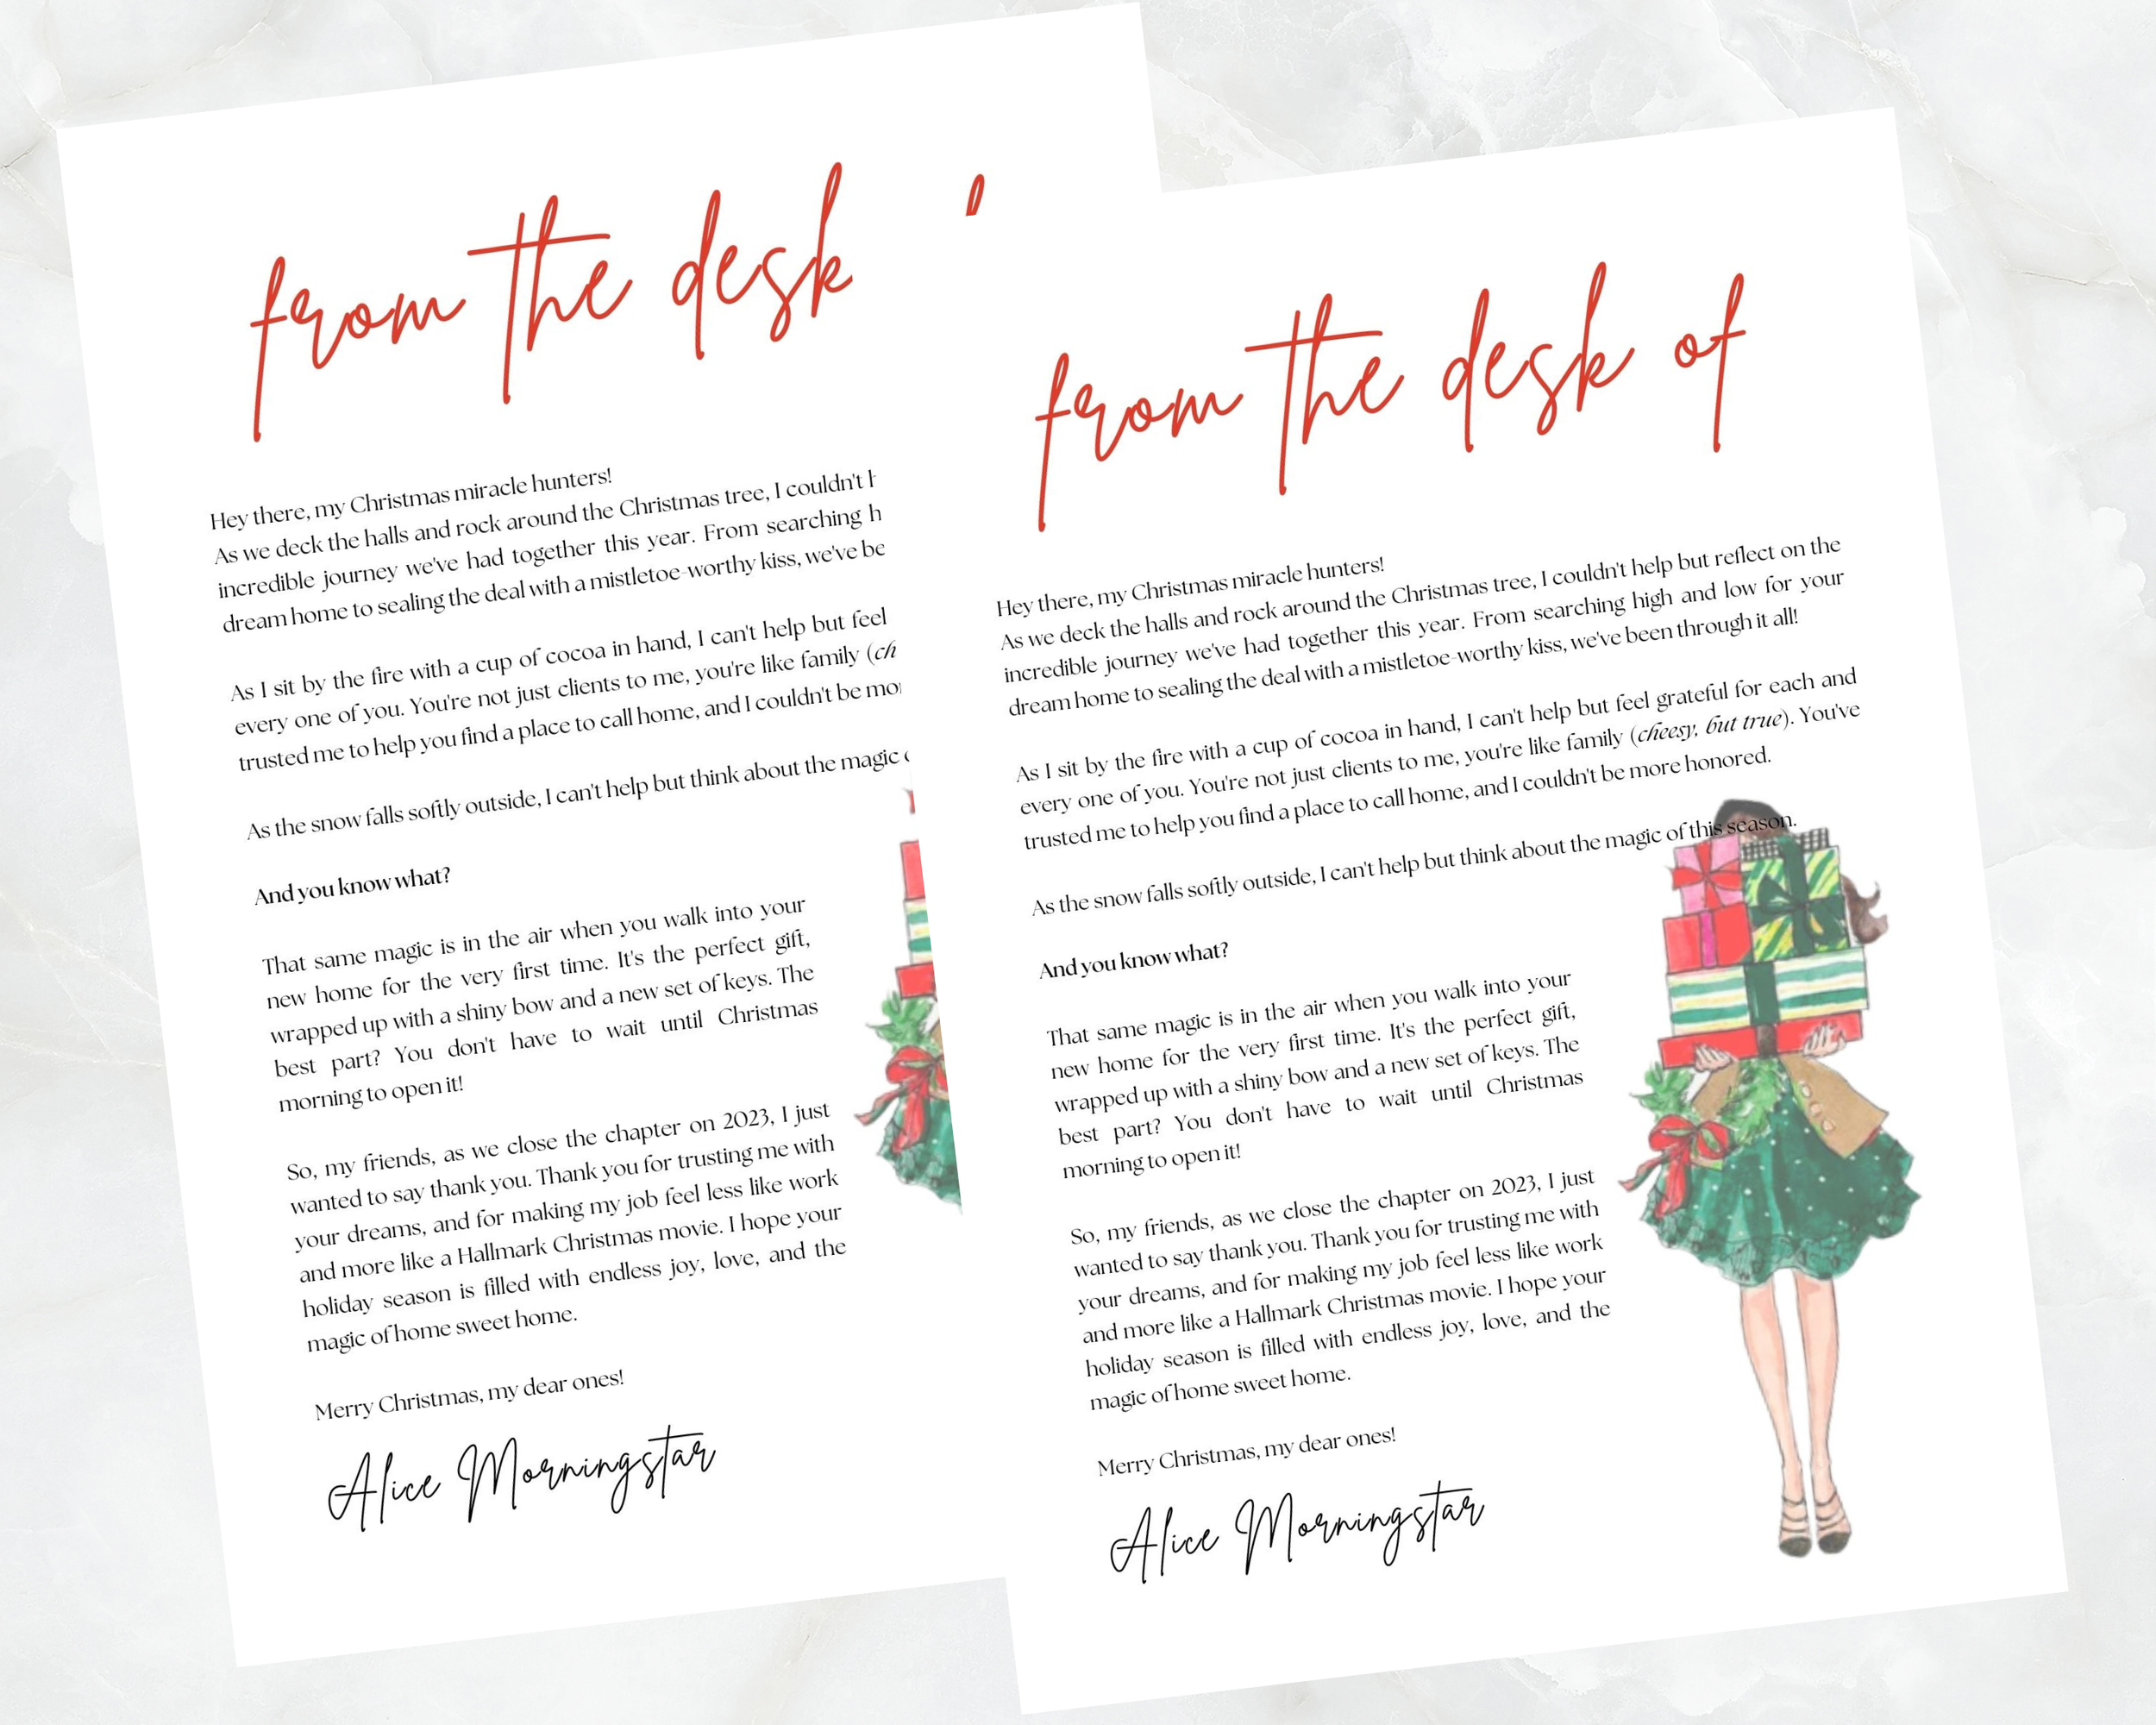 from the desk
Hey there, my Christmas miracle hunters!
As we deck the halls and rock around the Christmas tree, I couldn't
incredible journey we've had together this year. From searching
dream home to sealing the deal with a mistletoe-worthy kiss, we've be
As I sit by the fire with a cup of cocoa in hand, I can't help but feel
every one of you. You're not just clients to me, you're like family (ch
trusted me to help you find a place to call home, and I couldn't be mo
As the snow falls softly outside, I can't help but think about the magic
And you know what?
That same magic is in the air when you walk into your
new home for the very first time. It's the perfect gift,
wrapped up with a shiny bow and a new set of keys. The
best part? You don't have to wait until Christmas
morning to open it!
So, my friends, as we close the chapter on 2023, I just
wanted to say thank you. Thank you for trusting me with
your dreams, and for making my job feel less like work
and more like a Hallmark Christmas movie. I hope your
holiday season is filled with endless joy, love, and the
magic of home sweet home.
Merry Christmas, my dear ones!
Alice Morningstar
from the desk of
Hey there, my Christmas miracle hunters!
As we deck the halls and rock around the Christmas tree, I couldn't help but reflect on the
incredible journey we've had together this year. From searching high and low for your
dream home to sealing the deal with a mistletoe-worthy kiss, we've been through it all!
As I sit by the fire with a cup of cocoa in hand, I can't help but feel grateful for each and
every one of you. You're not just clients to me, you're like family (cheesy, but true). You've
trusted me to help you find a place to call home, and I couldn't be more honored.
As the snow falls softly outside, I can't help but think about the magic of this season.
And you know what?
That same magic is in the air when you walk into your
new home for the very first time. It's the perfect gift,
wrapped up with a shiny bow and a new set of keys. The
best part? You don't have to wait until Christmas
morning to open it!
So, my friends, as we close the chapter on 2023, I just
wanted to say thank you. Thank you for trusting me with
your dreams, and for making my job feel less like work
and more like a Hallmark Christmas movie. I hope your
holiday season is filled with endless joy, love, and the
magic of home sweet home.
Merry Christmas, my dear ones!
Alice Morningstar